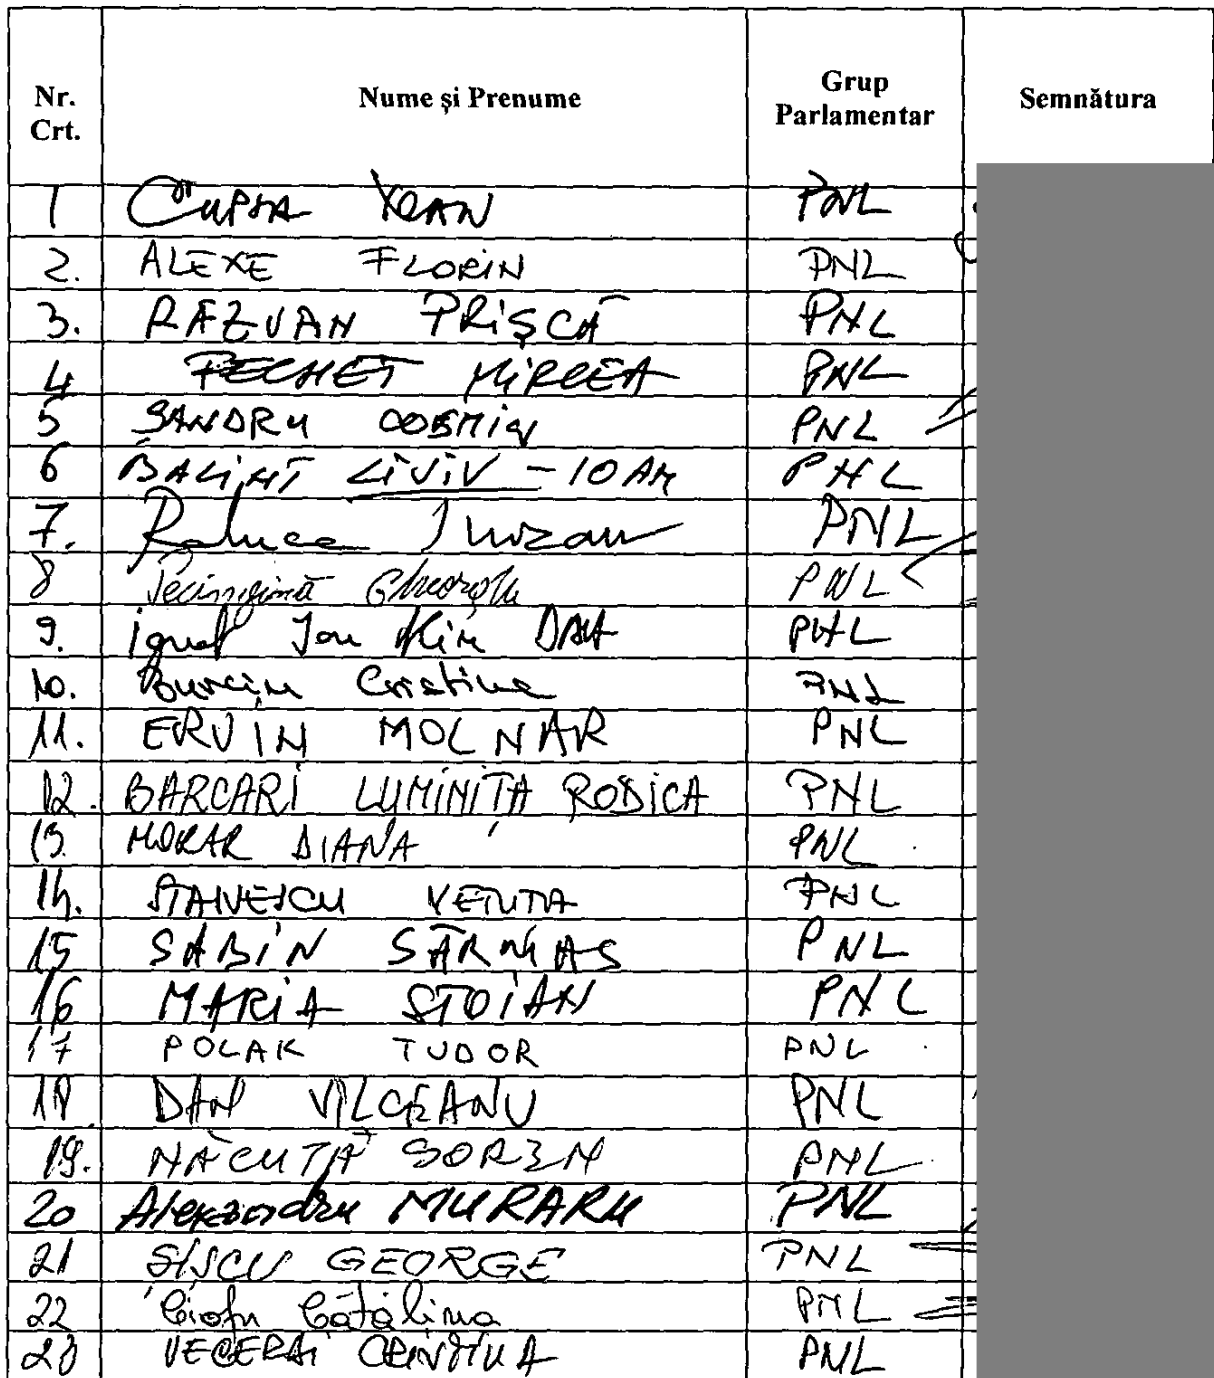 Nr. Crt. Nume și Prenume Grup Parlamentar Semnătura
1 CUPȘA IOAN PNL
2. ALEXE FLORIN PNL
3. RĂZVAN PRIȘCĂ PNL
4 FECHET MIRCEA PNL
5 ȘANDRU COSMIN PNL
6 BALINT LIVIU - IOAN PNL
7. Raluca Turcan PNL
8 Pecingină Gheorghe PNL
9. Ignat Ion Alin DAN PNL
10. Burciu Cristina PNL
11. ERVIN MOLNAR PNL
12. BARCARI LUMINIȚA RODICA PNL
13. MORAR DIANA PNL
14. STANESCU VETUTA PNL
15 SABIN SĂRMAȘ PNL
16 MARIA STOIAN PNL
17 POLAK TUDOR PNL
18 DAN VILCEANU PNL
19. NĂCUȚĂ SORIN PNL
20 Alexandru MURARU PNL
21 ȘIȘCU GEORGE PNL
22 Ciofu Cătălina PNL
23 VECERDI PNL